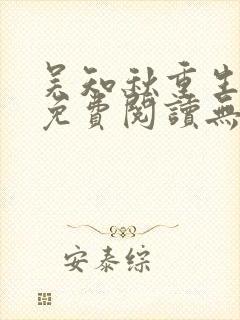 吴知秋重生
免費閱讀無
安泰综